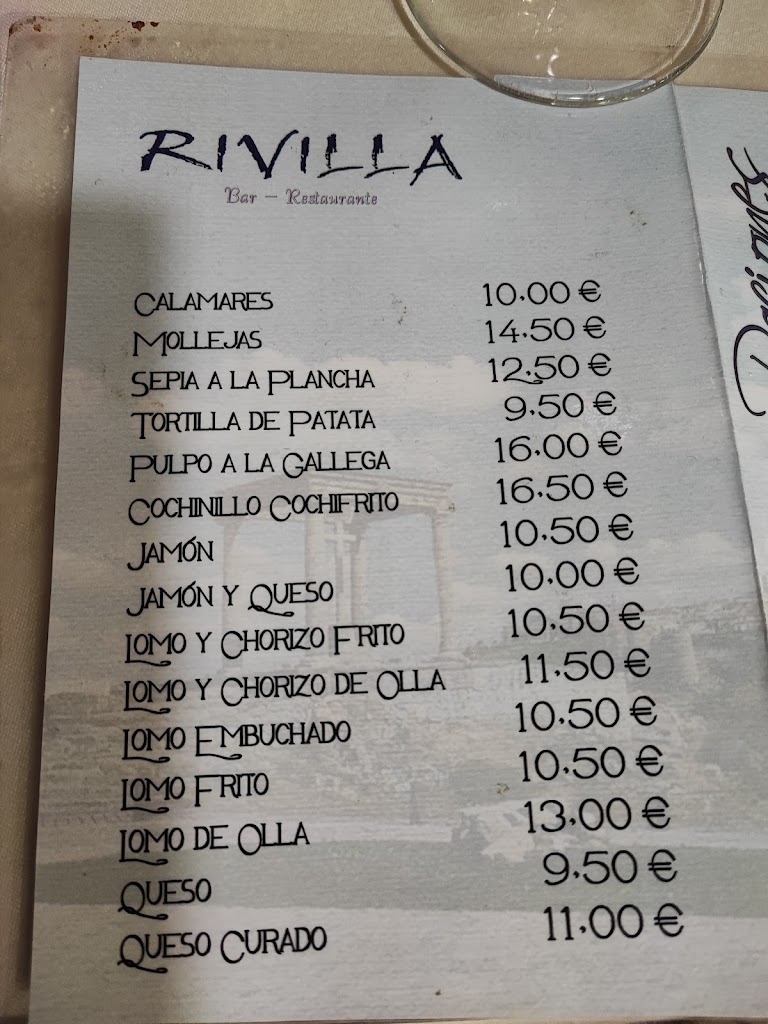 RIVILLA
Bar – Restaurante
CALAMARES 10.00 €
MOLLEJAS 14.50 €
SEPIA A LA PLANCHA 12.50 €
TORTILLA DE PATATA 9.50 €
PULPO A LA GALLEGA 16.00 €
COCHINILLO COCHIFRITO 16.50 €
JAMÓN 10.50 €
JAMÓN Y QUESO 10.00 €
LOMO Y CHORIZO FRITO 10.50 €
LOMO Y CHORIZO DE OLLA 11.50 €
LOMO EMBUCHADO 10.50 €
LOMO FRITO 10.50 €
LOMO DE OLLA 13.00 €
QUESO 9.50 €
QUESO CURADO 11.00 €